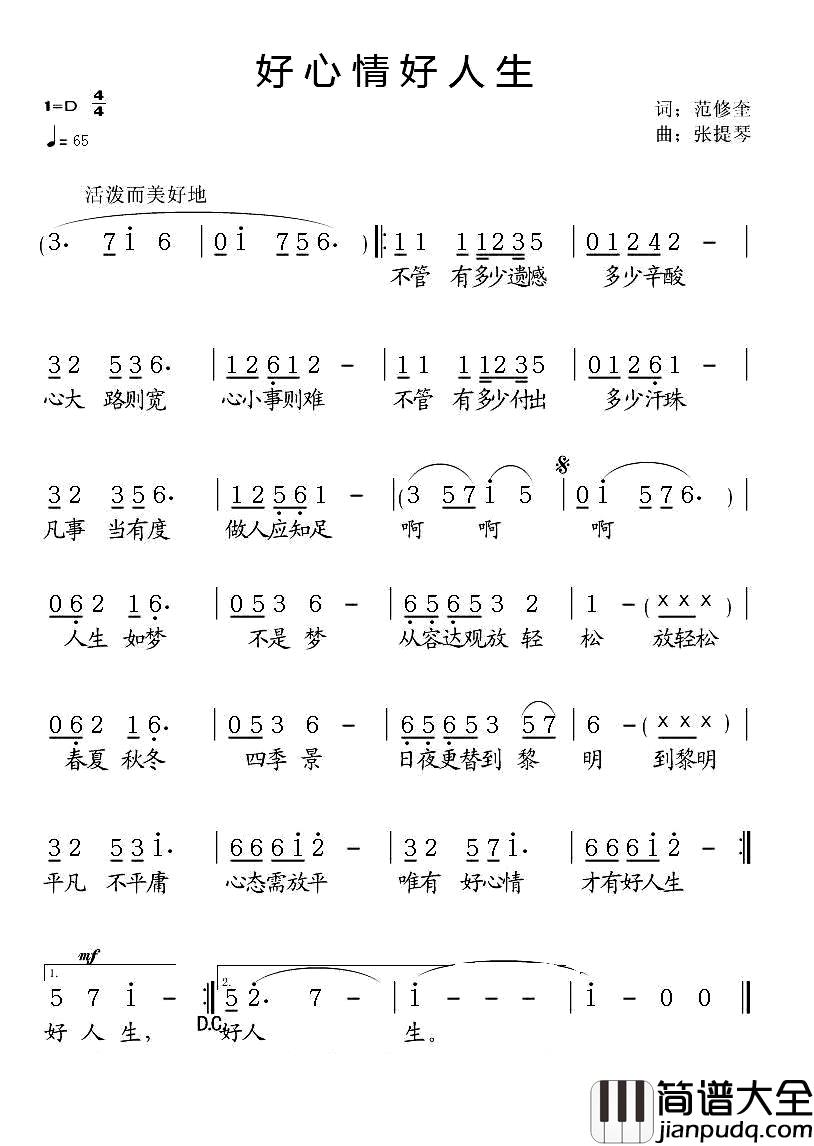 好心情好人生
1=D 4/4
词：范修奎
♩= 65
曲：张提琴
活泼而美好地
(3. 7 1 6 | 0 1 7 5 6. ) ‖: 1 1 1 1 2 3 5 | 0 1 2 4 2 - |
不管 有多少遗憾 多少辛酸
3 2 5 3 6. | 1 2 6 1 2 - | 1 1 1 1 2 3 5 | 0 1 2 6 1 - |
心大 路则宽 心小事则难 不管 有多少付出 多少汗珠
3 2 3 5 6. | 1 2 5 6 1 - | (3 5 7 1 5 | 0 1 5 7 6. ) |
凡事 当有度 做人应知足 啊 啊 啊
0 6 2 1 6. | 0 5 3 6 - | 6 5 6 5 3 2 | 1 - (x x x) |
人生 如梦 不是 梦 从容达观放 轻 松 放轻松
0 6 2 1 6. | 0 5 3 6 - | 6 5 6 5 3 5 7 | 6 - (x x x) |
春夏 秋冬 四季 景 日夜更替到 黎 明 到黎明
3 2 5 3 1. | 6 6 6 1 2 - | 3 2 5 7 1. | 6 6 6 1 2 - :‖
平凡 不平庸 心态需放平 唯有 好心情 才有好人生
mf
1. 2.
5 7 1 - :‖ 5 2. 7 - | 1 - - - | 1 - 0 0 ‖
D.C.
好 人 生， 好人 生。
简谱大全
jianpudq.com